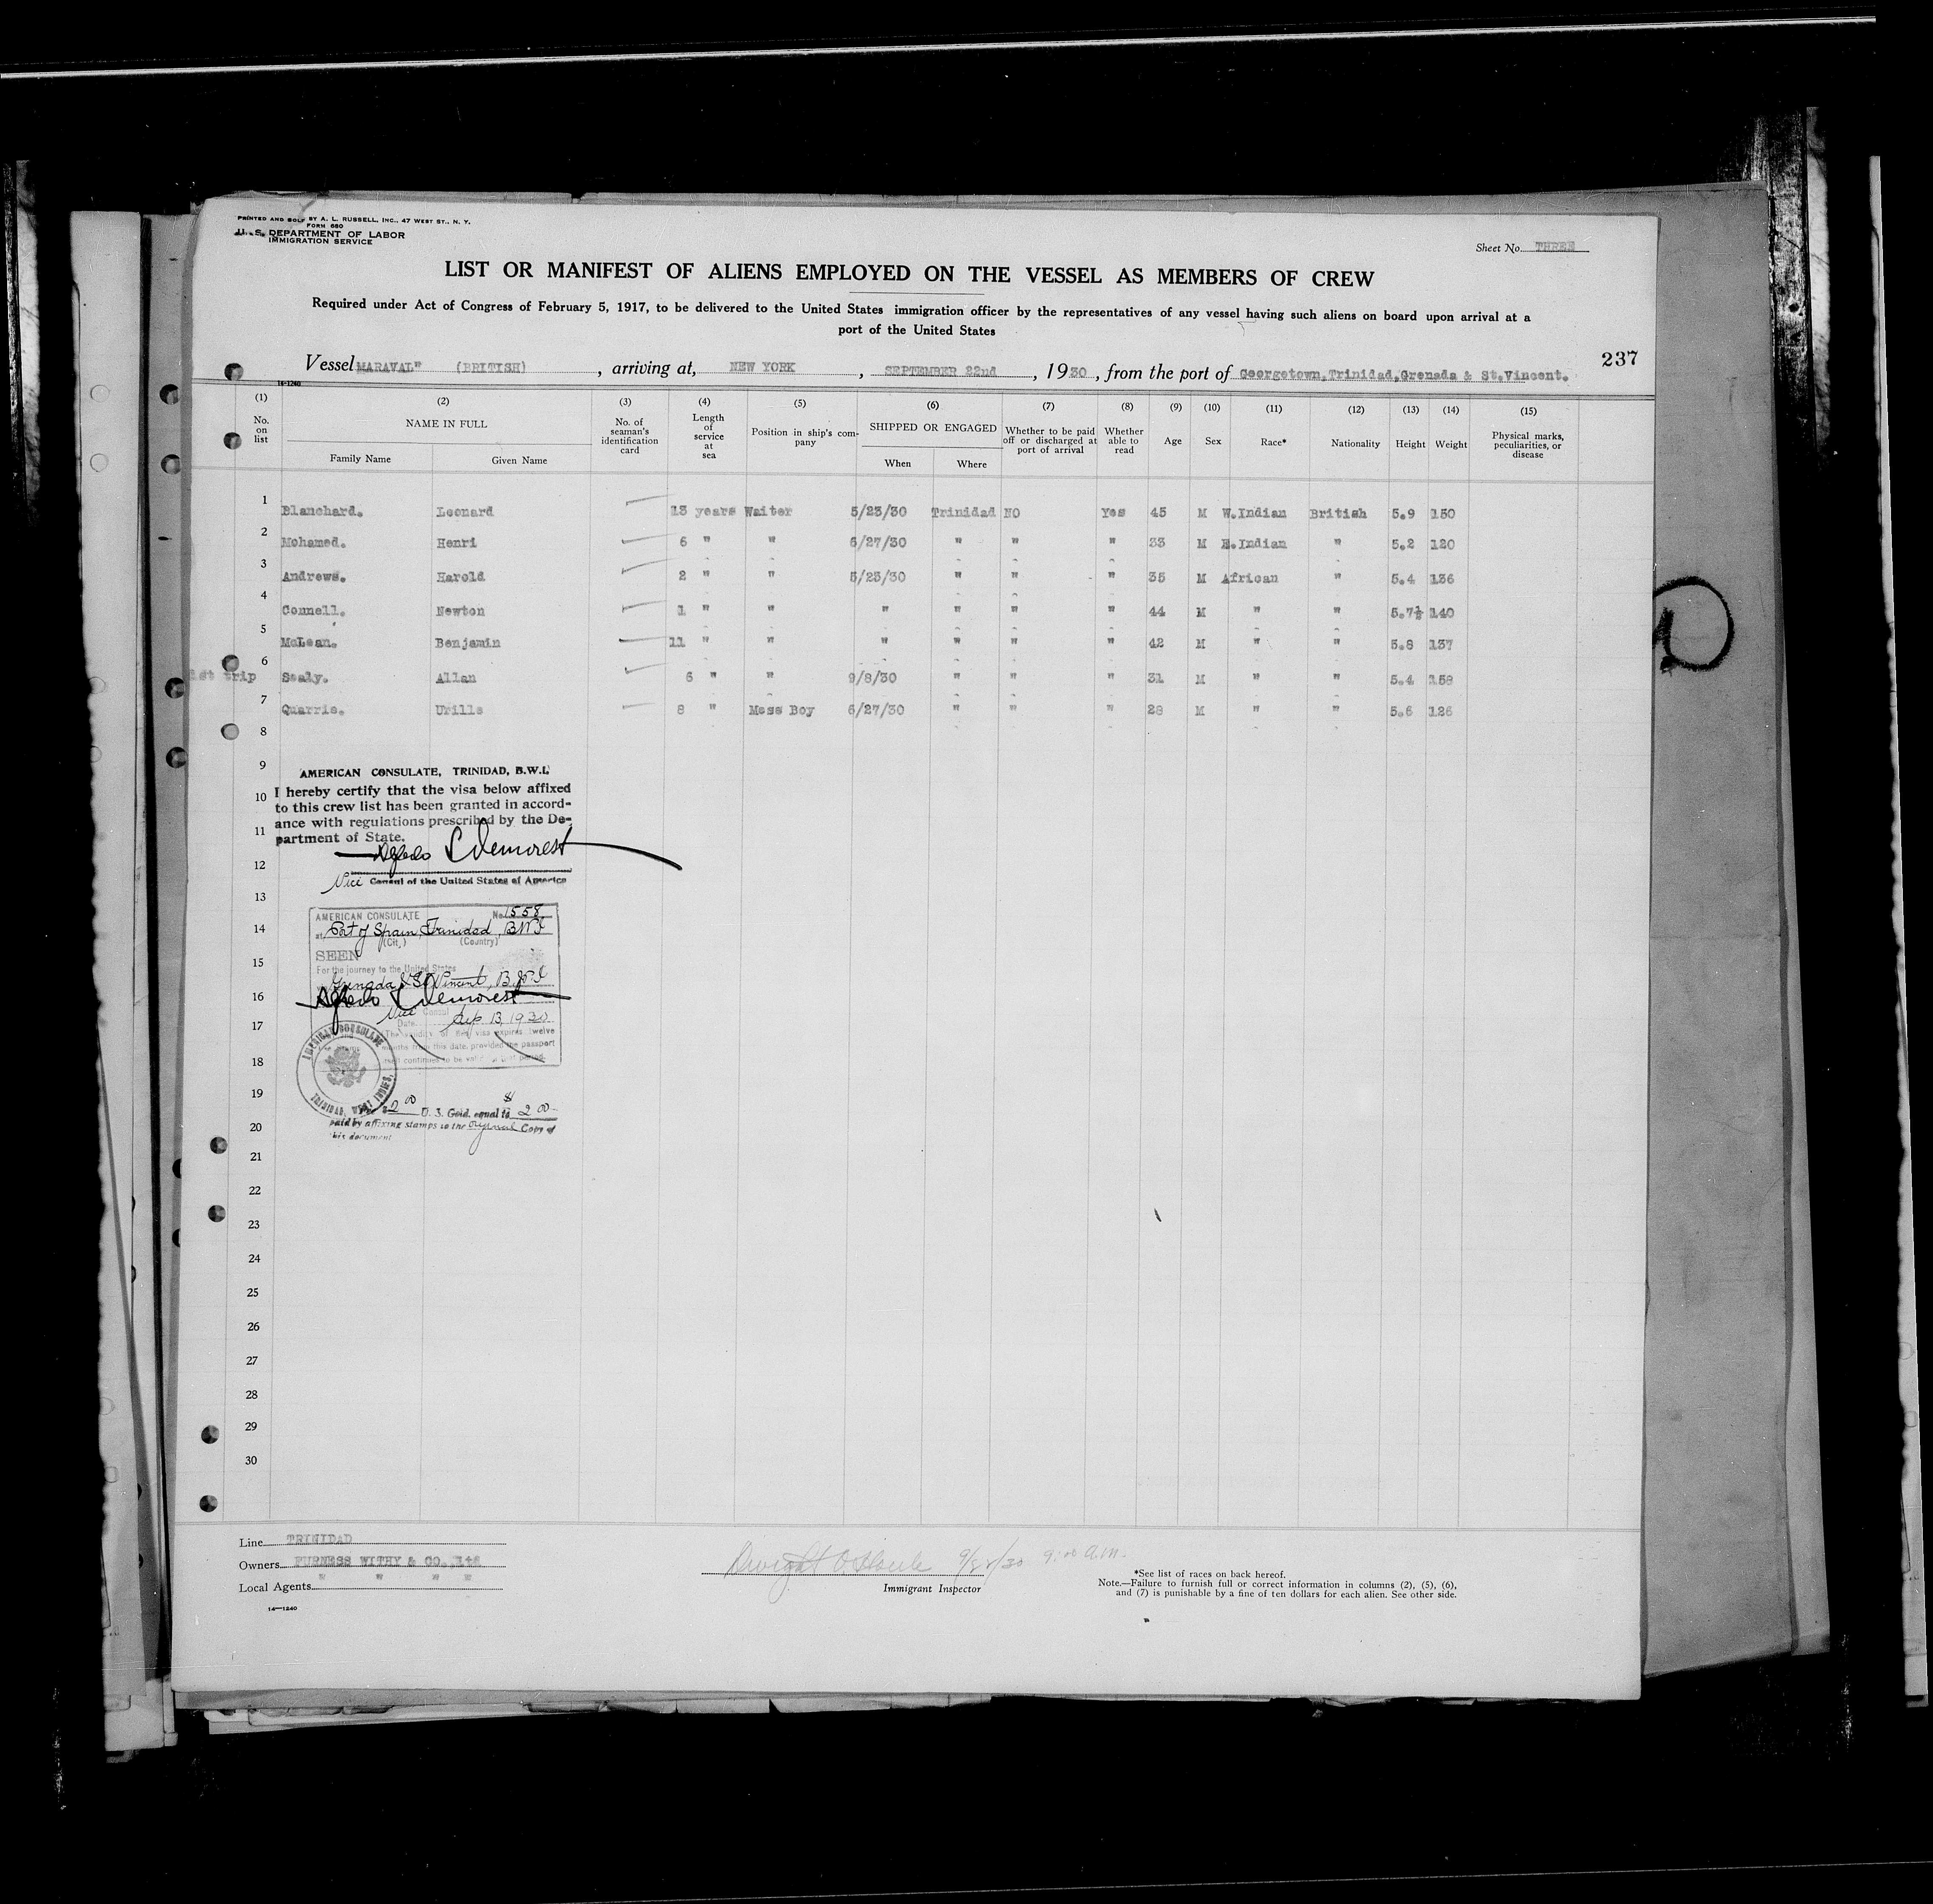 PRINTED AND SOLD BY A. L. RUSSELL, INC., 47 WEST ST., N. Y.
FORM 680
U. S. DEPARTMENT OF LABOR
IMMIGRATION SERVICE
Sheet No. THREE
LIST OR MANIFEST OF ALIENS EMPLOYED ON THE VESSEL AS MEMBERS OF CREW
Required under Act of Congress of February 5, 1917, to be delivered to the United States immigration officer by the representatives of any vessel having such aliens on board upon arrival at a
port of the United States
237
Vessel MARAVAL" (BRITISH), arriving at, NEW YORK, SEPTEMBER 22nd, 1930, from the port of Georgetown, Trinidad, Grenada & St. Vincent.
14-1240
(1) (2) (3) (4) (5) (6) (7) (8) (9) (10) (11) (12) (13) (14) (15)
No. on list NAME IN FULL Family Name Given Name No. of seaman's identification card Length of service at sea Position in ship's company SHIPPED OR ENGAGED When Where Whether to be paid off or discharged at port of arrival Whether able to read Age Sex Race* Nationality Height Weight Physical marks, peculiarities, or disease
1 Blanchard. Leonard 13 years Waiter 5/23/30 Trinidad NO Yes 45 M W.Indian British 5.9 150
2 Mohamed. Henri 6 " " 6/27/30 " " " 33 M E.Indian " 5.2 120
3 Andrews. Harold 2 " " 5/23/30 " " " 35 M African " 5.4 136
4 Connell. Newton 1 " " " " " " 44 M " " 5.7½ 140
5 McLean. Benjamin 11 " " " " " " 42 M " " 5.8 137
1st trip 6 Sealy. Allan 6 " " 9/8/30 " " " 31 M " " 5.4 158
7 Quarrie. Urills 8 " Mess Boy 6/27/30 " " " 28 M " " 5.6 126
8
9
AMERICAN CONSULATE, TRINIDAD, B.W.I.
10 I hereby certify that the visa below affixed
to this crew list has been granted in accord-
11 ance with regulations prescribed by the De-
partment of State.
12
Vice Consul of the United States of America
13
AMERICAN CONSULATE No. 1558
14 at Port of Spain, Trinidad, BWI
(City) (Country)
SEEN
15 For the journey to the United States
Grenada & St Vincent, B.W.I
16
Vice Consul
17 Date Sep 13, 1930
The validity of this visa expires twelve
months from this date, provided the passport
18 itself continues to be valid for that period.
AMERICAN CONSULATE
TRINIDAD, WEST INDIES.
19
$2.00 U. S. Gold, equal to $2.00
20 paid by affixing stamps to the original Copy of
this document
21
22
23
24
25
26
27
28
29
30
Line TRINIDAD
Owners FURNESS WITHY & CO. Ltd
Local Agents " " " "
14—1240
9/22/30 9:00 A.M.
Immigrant Inspector
*See list of races on back hereof.
Note.—Failure to furnish full or correct information in columns (2), (5), (6),
and (7) is punishable by a fine of ten dollars for each alien. See other side.